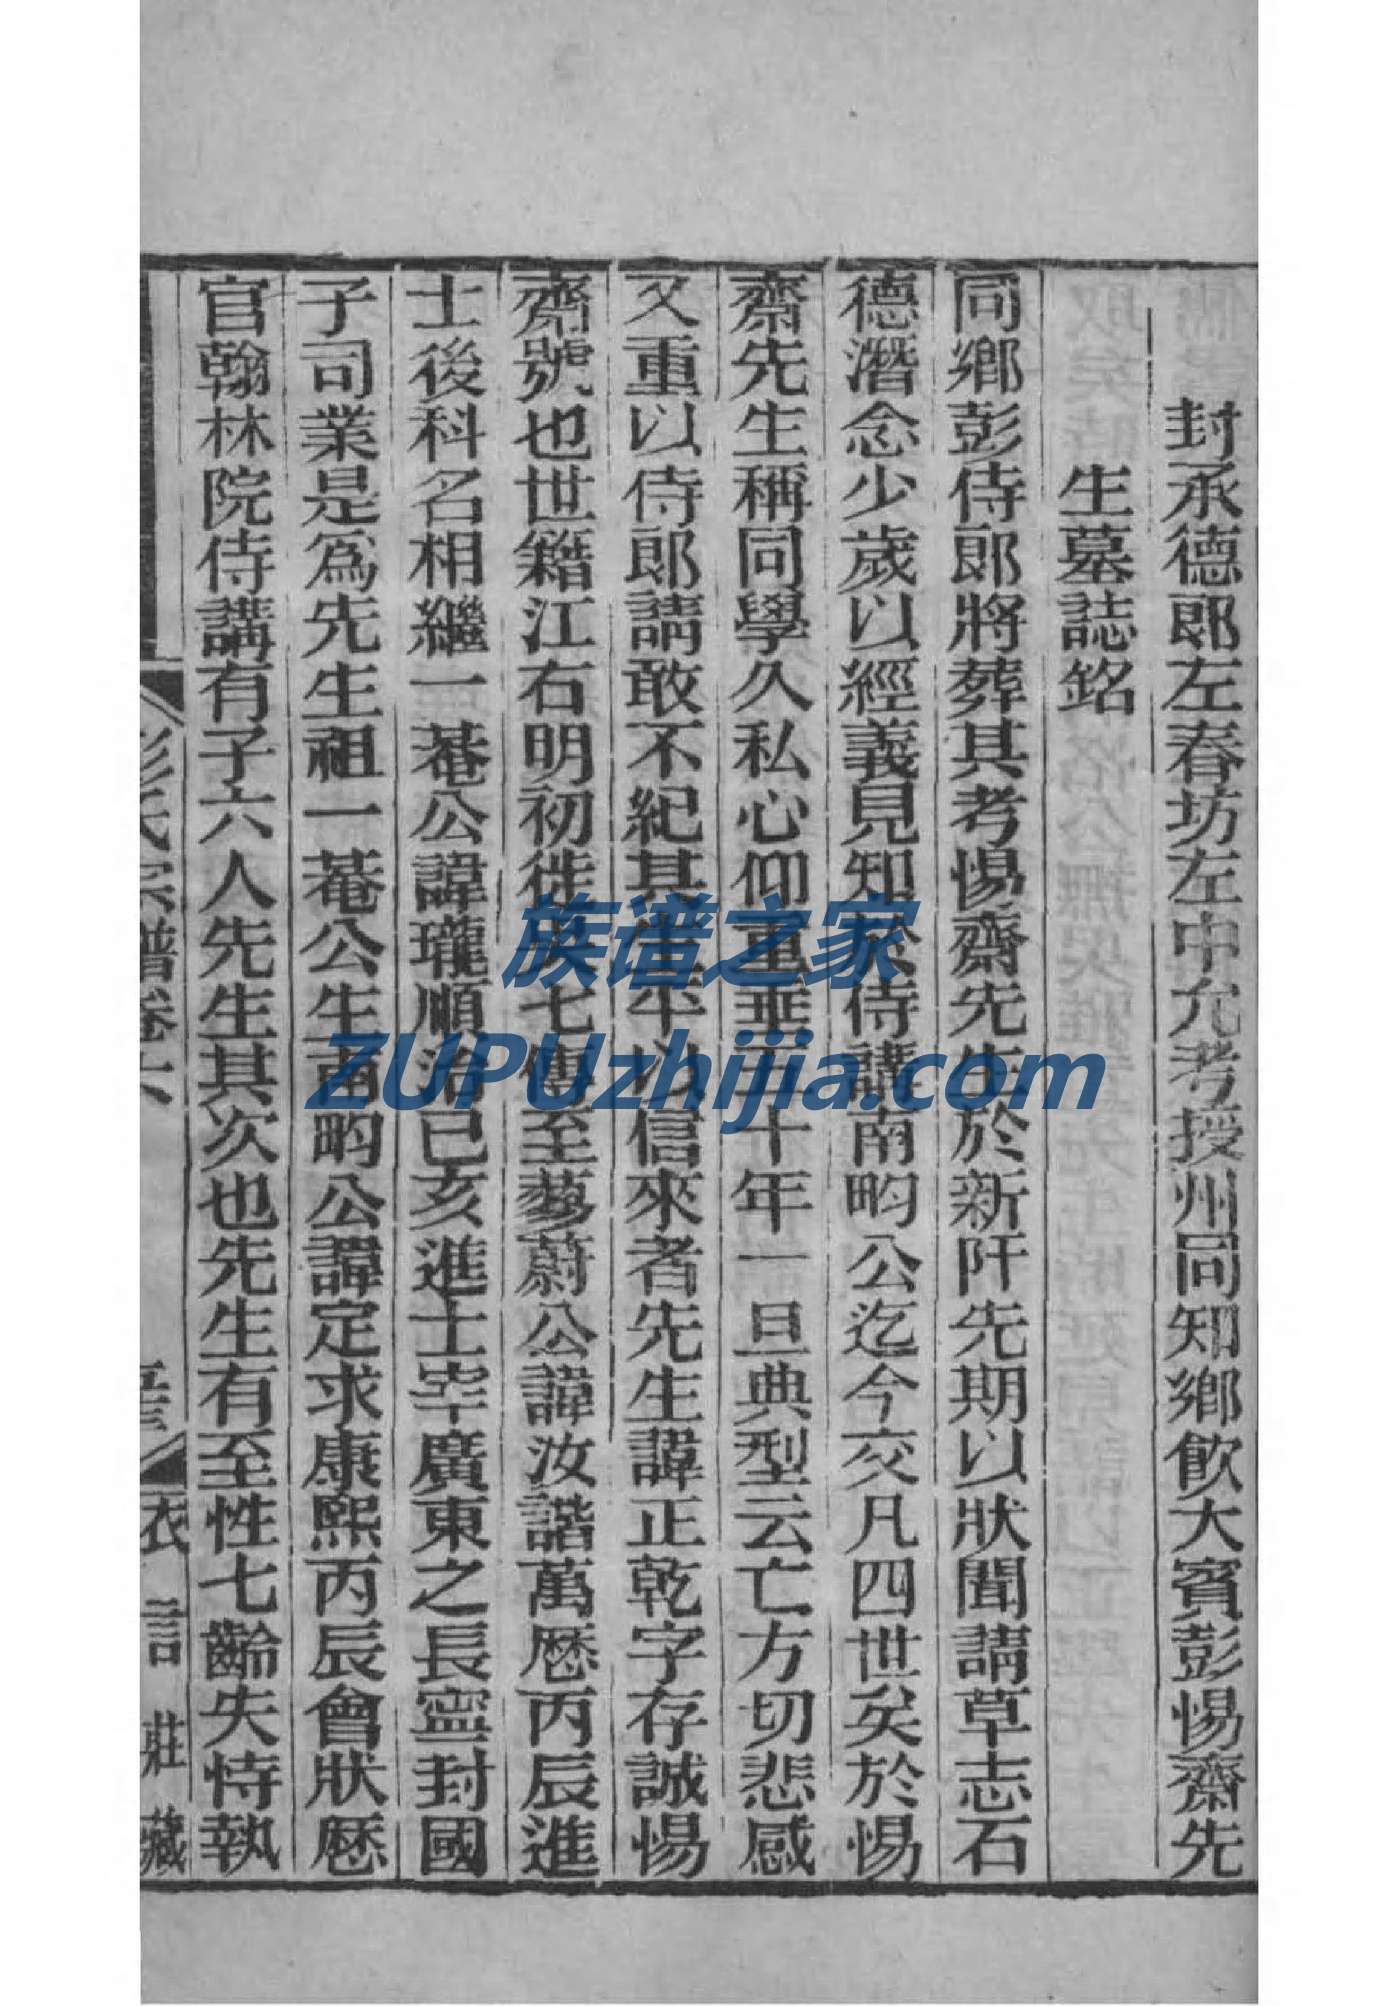 封承德郎左春坊左中允考授州同知鄉飲大賓彭惕齋先
生墓誌銘
同鄉彭侍郎將葬其考惕齋先生於新阡先期以狀聞請草志石
德潛念少歲以經義見知於侍講南畇公迄今交凡四世矣於惕
齋先生稱同學久私心仰重垂五十年一旦典型云亡方切悲感
又重以侍郎請敢不紀其生平以信來者先生諱正乾字存誠惕
齋號也世籍江右明初徙吳七傳至蓼蔚公諱汝諧萬厯丙辰進
士後科名相繼一菴公諱瓏順治己亥進士宰廣東之長寧封國
子司業是爲先生祖一菴公生南畇公諱定求康熙丙辰會狀厯
官翰林院侍講有子六人先生其次也先生有至性七齡失恃執
彭氏宗譜卷
衣言莊藏
族谱之家
ZUPUzhijia.com